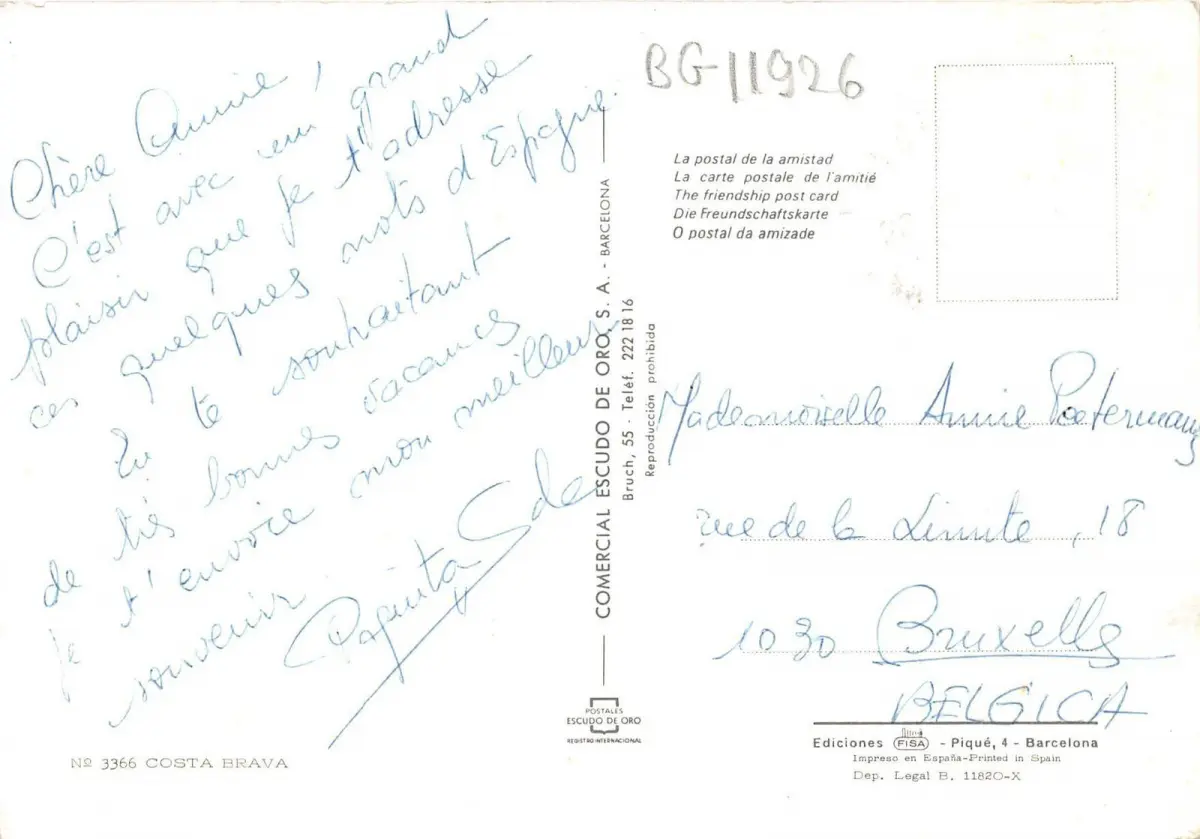 Chère Annie,
C'est avec un grand
plaisir que je t'adresse
ces quelques mots d'Espagne.
En te souhaitant
de très bonnes vacances
je t'envoie mon meilleur
souvenir
Paquita
BG11926
La postal de la amistad
La carte postale de l'amitié
The friendship post card
Die Freundschaftskarte
O postal da amizade
COMERCIAL ESCUDO DE ORO, S. A. - BARCELONA
Bruch, 55 - Teléf. 222 18 16
Reproducción prohibida
Mademoiselle Annie Poetermans
rue de la Limite, 18
1030 Bruxelles
BELGICA
POSTALES
ESCUDO DE ORO
REGISTRO INTERNACIONAL
Nº 3366 COSTA BRAVA
Ediciones FISA - Piqué, 4 - Barcelona
Impreso en España-Printed in Spain
Dep. Legal B. 11820-X